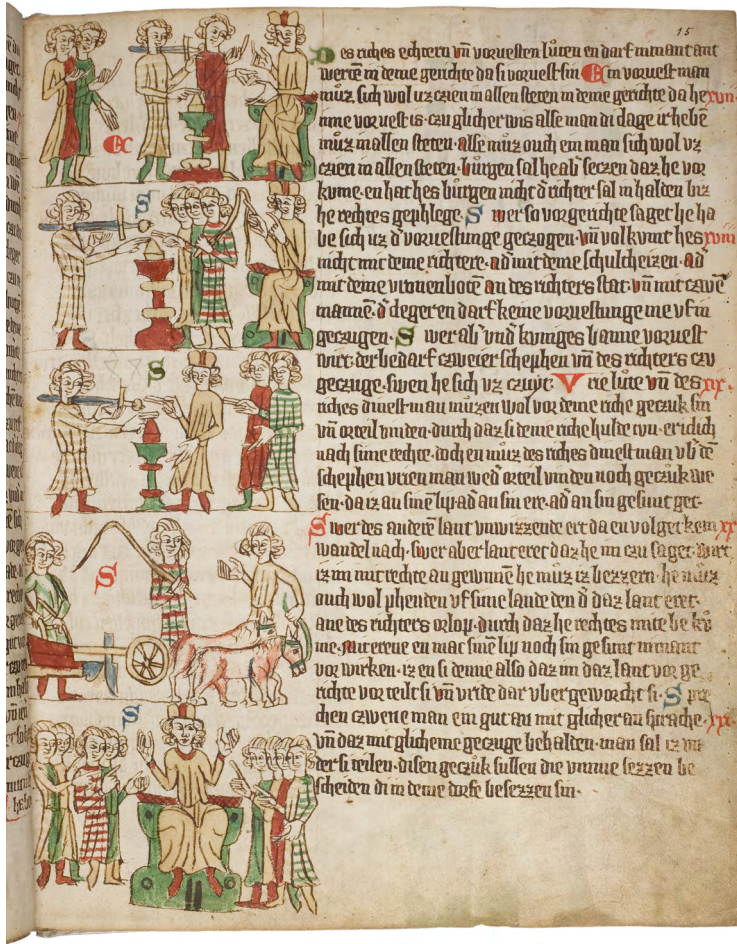 15
Des riches echtern vñ vorvesten lůten en darf nimant ant
werten in deme gerichte da si vorvest sin Ein vorvest man
můz sich wol uz czien in allen steten in deme gerichte da he xvii
inne vorvest is. czu glicher wis alse man di clage irhebē
můz in allen steten. alse můz ouch ein man sich wol uz
czien in allen steten. bůrgen sal he ab seczen daz he vor
kume. en hat hes bůrgen nicht d̕ richter sal in halden biz
he rechtes gephlege. S wer so vor gerichte saget he ha
be sich uz d̕ vorvestunge geczogen. vñ volkumt hes xviii
nicht mit deme richtere. ad̕ mit deme schulcheizen. ad̕
mit deme vronenbotē an des richters stat. vñ mit czwē
mannē. d̕ cleger en darf keine vorvestunge me uf in
geczugen. S wer ab̕ und̕ kuniges banne vorvest
wirt. der bedarf czweier schephen vñ des richters czu
geczuge. swen he sich uz czuyt. V rie lůte vñ des xix.
riches dinestman můzen wol vor deme riche geczuk sin
vñ orteil vinden. durch daz si deme riche hulde tvn. er iclich
nach sime rechte. doch en můz des riches dinest man vb̕ dē
schephen vrien man wed̕ orteil vinden noch geczuk we
sen. da iz an sinē lip. ad̕ an sin ere. ad̕ an sin gesunt get.
S wer des anderē lant unwizzende ert da en volget kein xx
wandel nach. swer aber lant eret daz he im czu saget. wirt
iz im mit rechte an gewunnē he můz iz bezzern. he můz
ouch wol phenden uf sime lande den d̕ daz lant eret.
ane des richters orlop. durch daz he rechtes mite be ků
me. Mit erene en mac sinē lip noch sin gesunt nimant
vor wirken. iz en si denne also daz im daz lant vor ge
richte vor teilt si vñ vride dar uber geworcht si. S pre
chen czwene man ein gut an mit glicher an sprache. xxi.
vñ daz mit glicheme geczuge behalden. man sal iz un
der si teilen. disen geczuk sullen die umme sezzen be
scheiden di in deme dorfe besezzen sin.